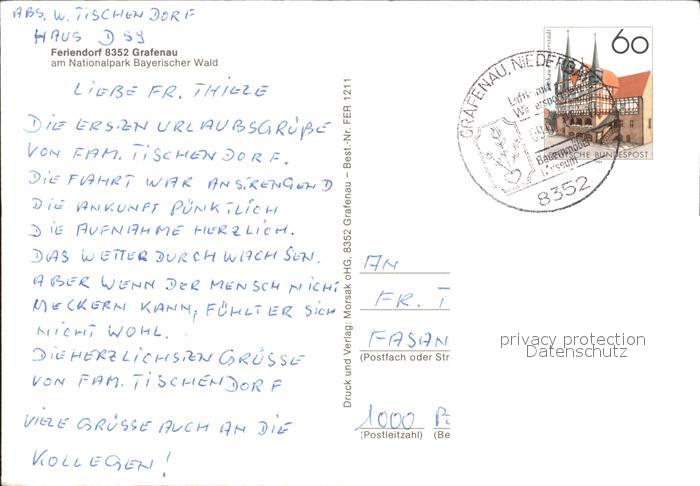 ABS. W. TISCHENDORF
HAUS D 59
Feriendorf 8352 Grafenau
am Nationalpark Bayerischer Wald
LIEBE FR. THIELE
DIE ERSTEN URLAUBSGRÜßE
VON FAM. TISCHENDORF.
DIE FAHRT WAR ANSTRENGEND
DIE ANKUNFT PÜNKTLICH
DIE AUFNAHME HERZLICH.
DAS WETTER DURCHWACHSEN.
ABER WENN DER MENSCH NICHT
MECKERN KANN, FÜHLT ER SICH
NICHT WOHL.
DIE HERZLICHSTEN GRÜSSE
VON FAM. TISCHENDORF
VIELE GRÜSSE AUCH AN DIE
KOLLEGEN!
Druck und Verlag: Morsak oHG, 8352 Grafenau – Best.-Nr. FER 1211
60
DEUTSCHE BUNDESPOST
GRAFENAU, NIEDERBAY
Luft- und
Bauernmöbel
Museum
8352
AN
FR. T
FASAN
(Postfach oder Str
1000
(Postleitzahl) (Be
privacy protection
Datenschutz